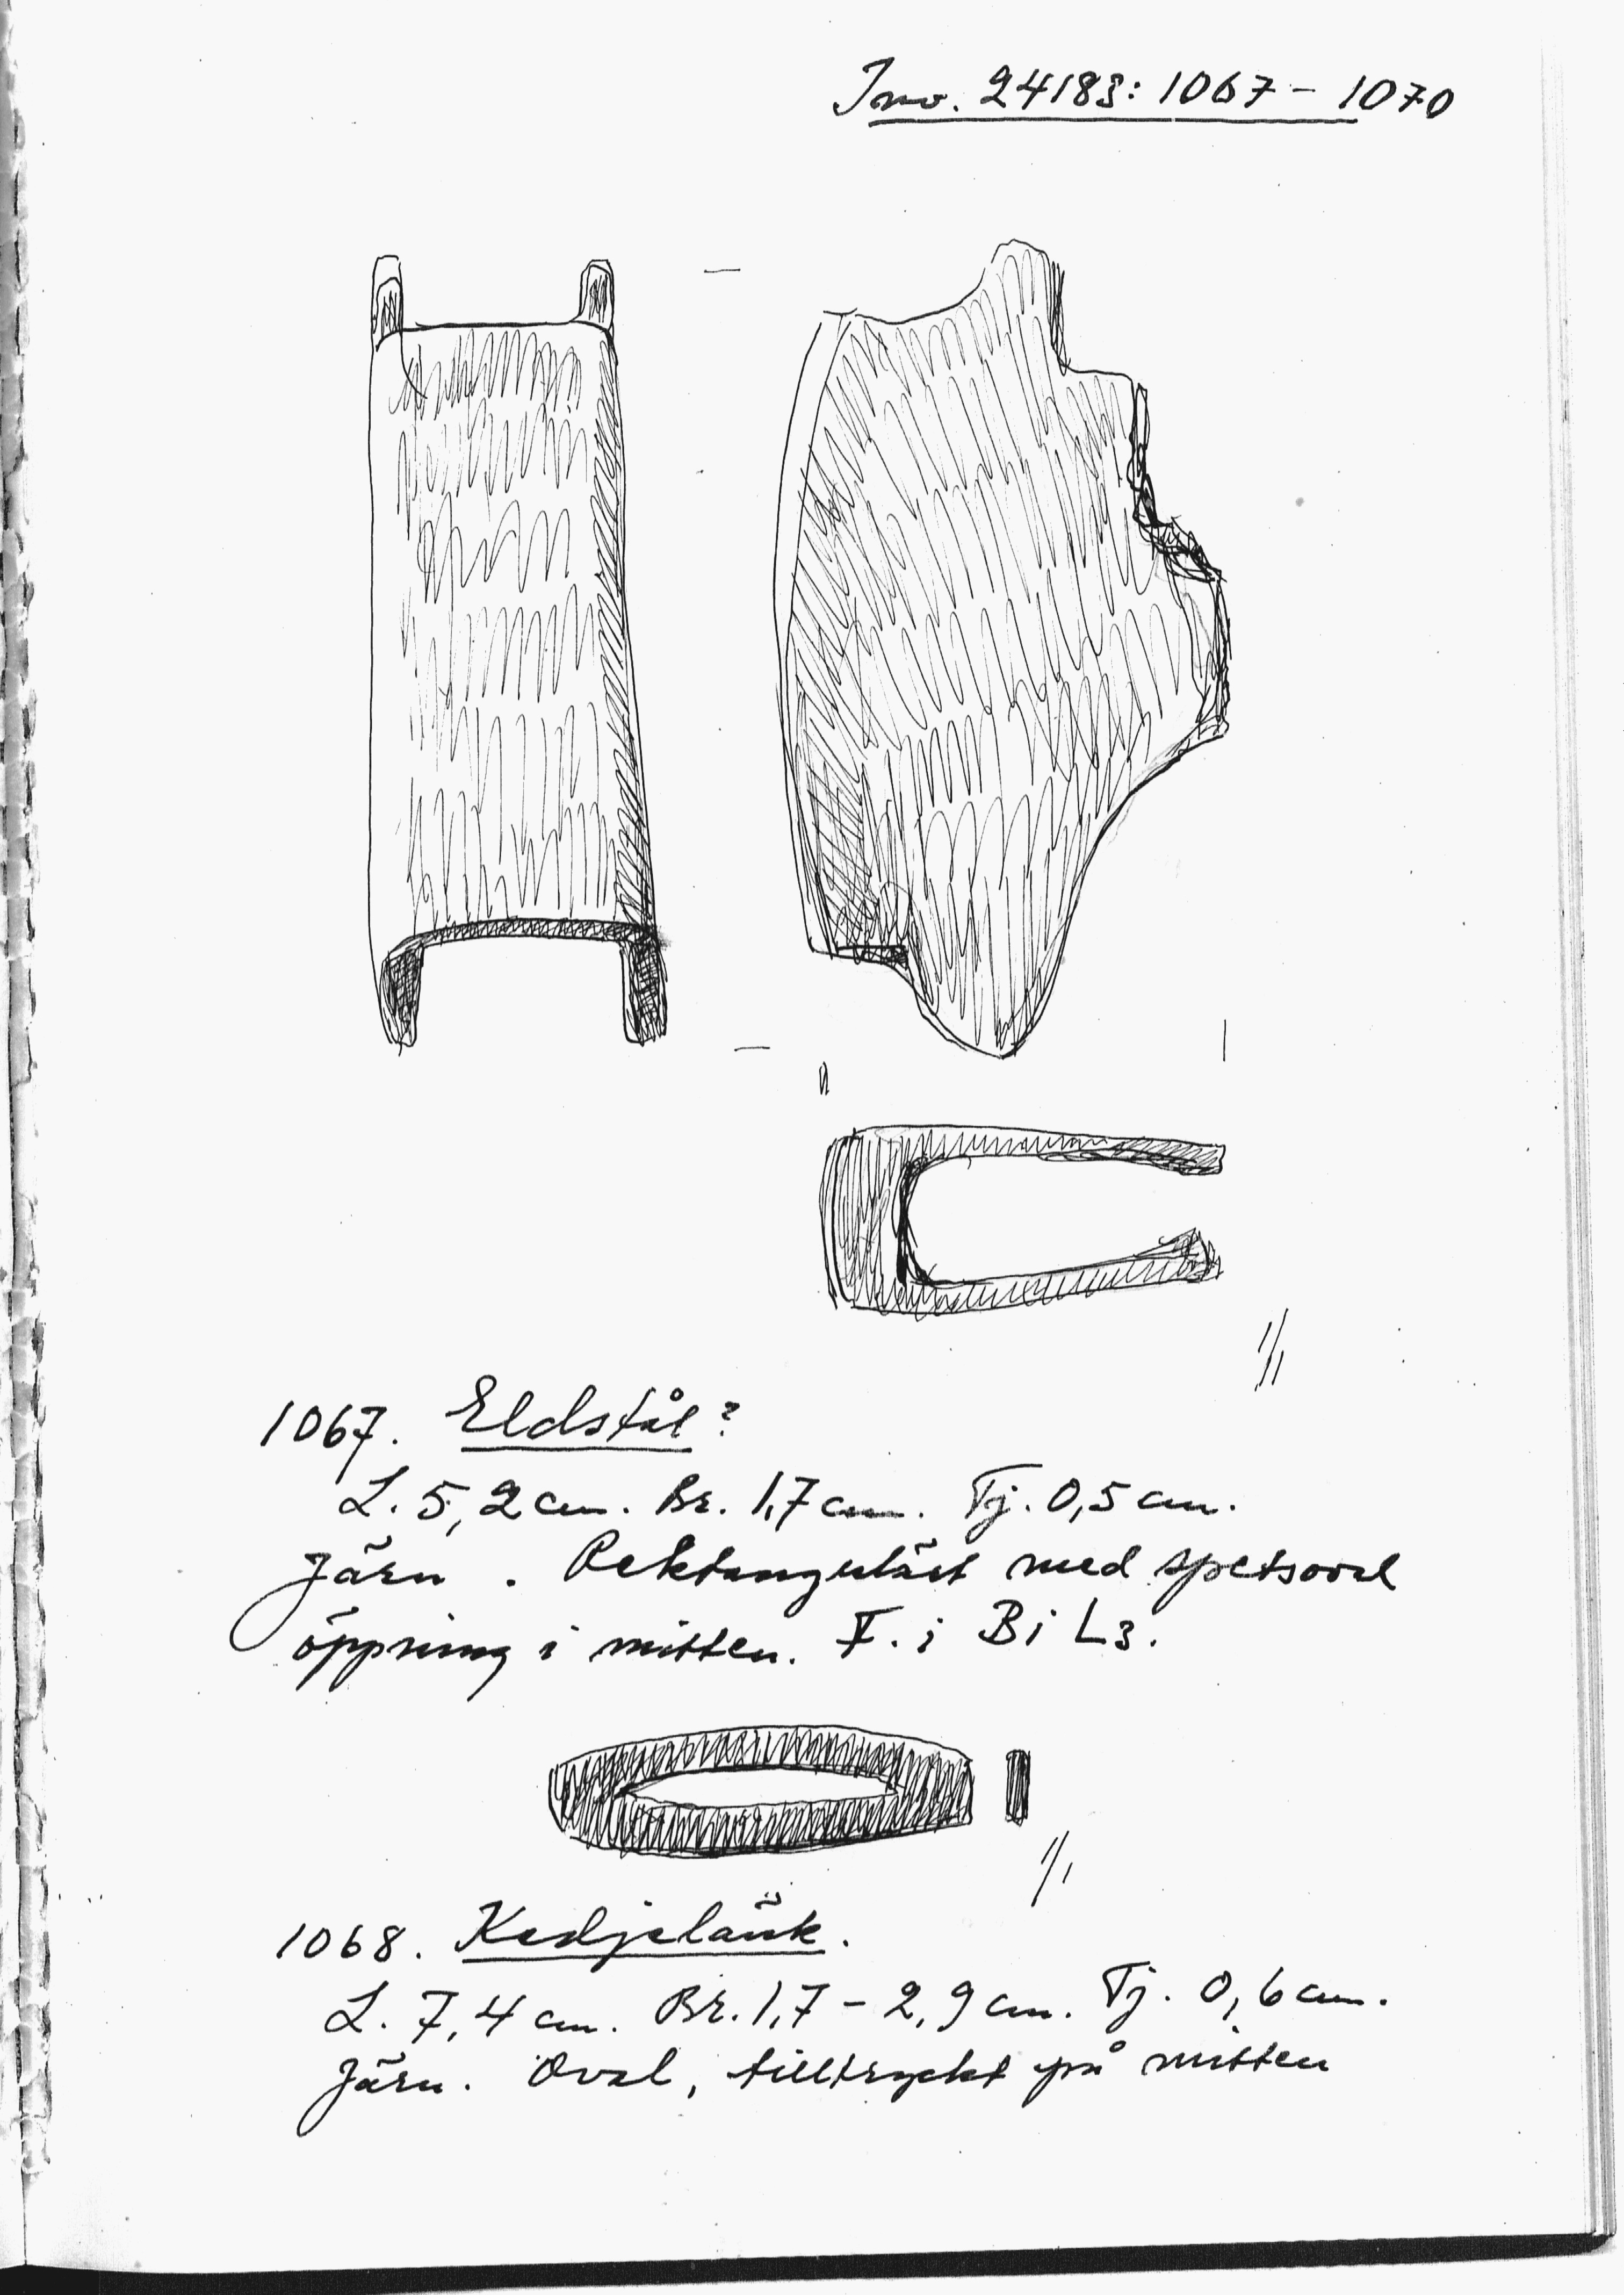 Inv. 24183: 1067 – 1070
1/1
1067. Eldstål?
L. 5,2 cm. Br. 1,7 cm. Tj. 0,5 cm.
Järn. Rektangulärt med spetsoval
öppning i mitten. F. i B i L3.
1/1
1068. Kedjelänk.
L. 7,4 cm. Br. 1,7 – 2,9 cm. Tj. 0,6 cm.
Järn. Oval, tilltryckt på mitten